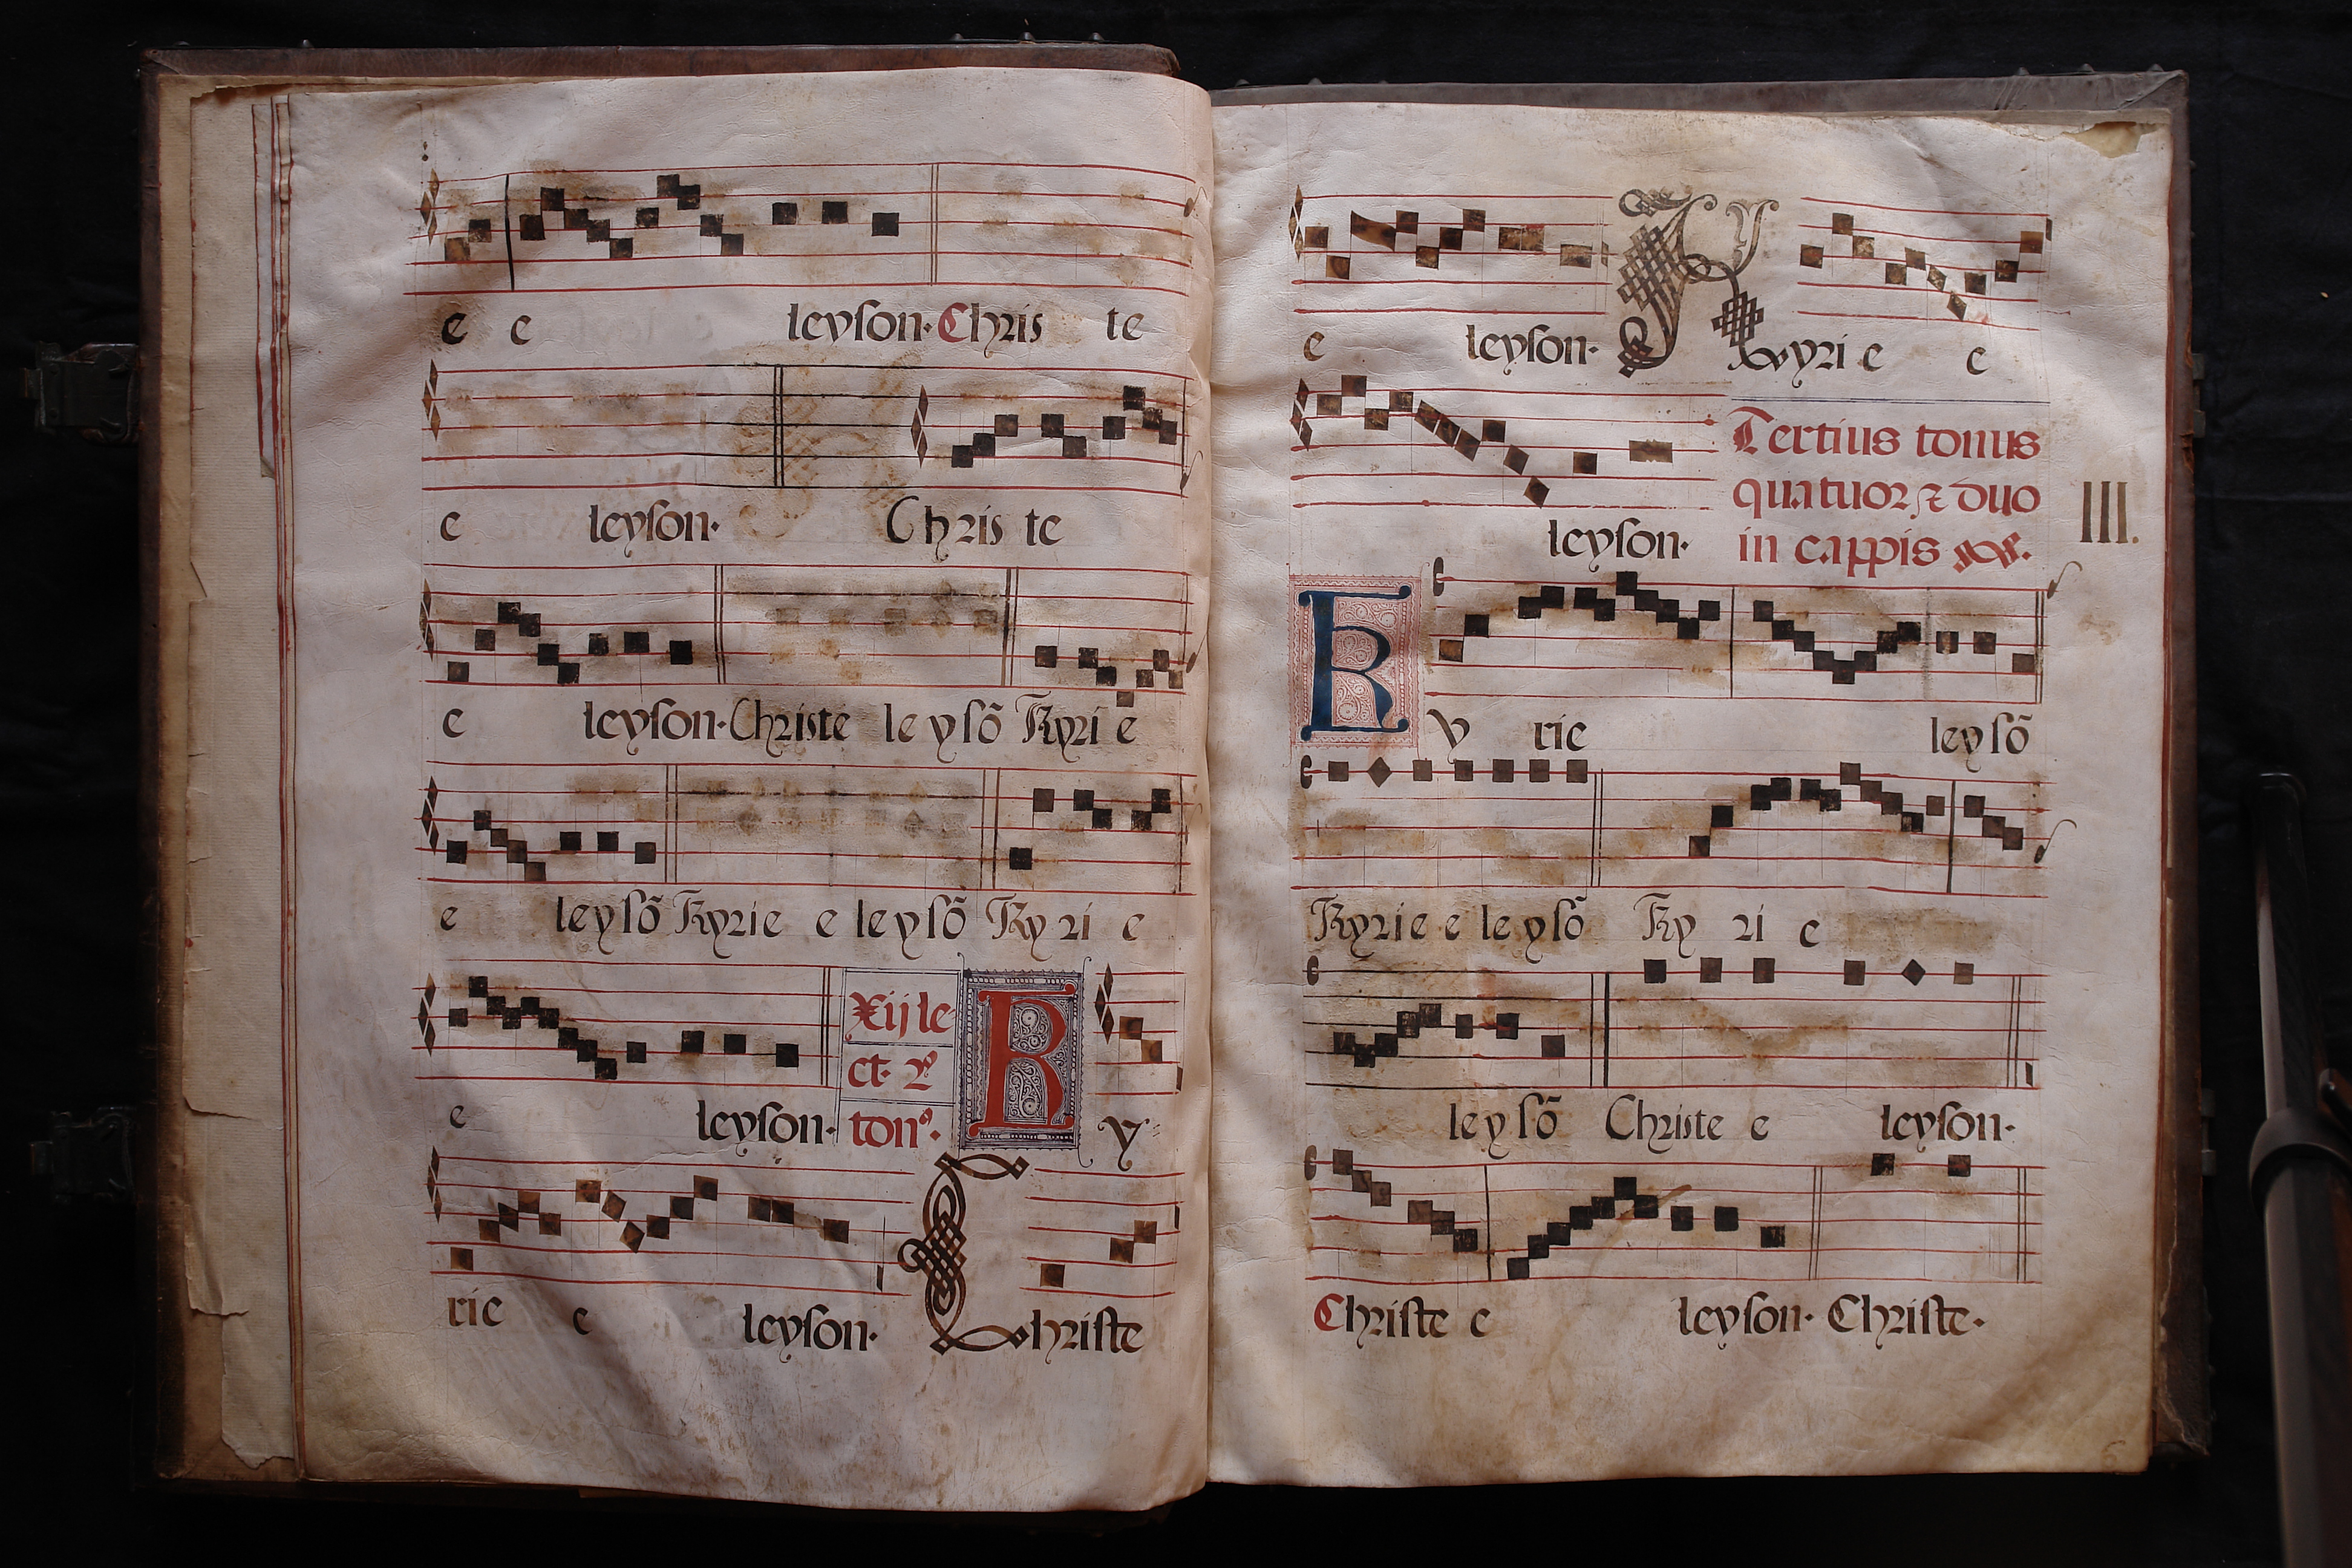 e e leyson. Chris te
e leyson. Chris te
e leyson. Christe le y sō Kyri e
e le y sō Kyrie e le y sō Ky ri e
e leyson. Xij le
ct. 2.
ton⁹.
K y
rie e leyson. Christe
e leyson. Kyri e e
leyson.
Tertius tonus
quatuor ⁊ duo
in cappis
III.
K y rie ley sō
Kyrie e le y sō Ky ri e
le y sō Christe e leyson.
Christe e leyson. Christe.
6